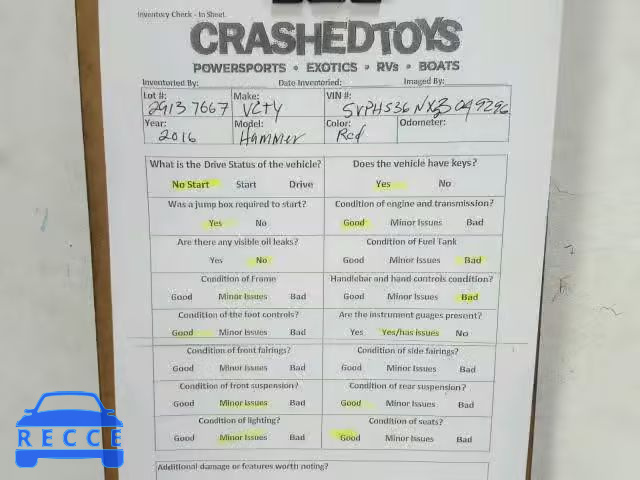 Inventory Check - In Sheet
CRASHEDTOYS
POWERSPORTS • EXOTICS • RVs • BOATS
Inventoried By: Date Inventoried: Imaged By:
Lot #: Make: VIN #:
29137667 VCTY 5VPHS36NXG3049296
Year: Model: Color: Odometer:
2016 Hammer Red
What is the Drive Status of the vehicle? Does the vehicle have keys?
No Start Start Drive Yes No
Was a jump box required to start? Condition of engine and transmission?
Yes No Good Minor Issues Bad
Are there any visible oil leaks? Condition of Fuel Tank
Yes No Good Minor Issues Bad
Condition of Frame Handlebar and hand controls condition?
Good Minor Issues Bad Good Minor Issues Bad
Condition of the foot controls? Are the instrument guages present?
Good Minor Issues Bad Yes Yes/has issues No
Condition of front fairings? Condition of side fairings?
Good Minor Issues Bad Good Minor Issues Bad
Condition of front suspension? Condition of rear suspension?
Good Minor Issues Bad Good Minor Issues Bad
Condition of lighting? Condition of seats?
Good Minor Issues Bad Good Minor Issues Bad
Additional damage or features worth noting?
RECCE